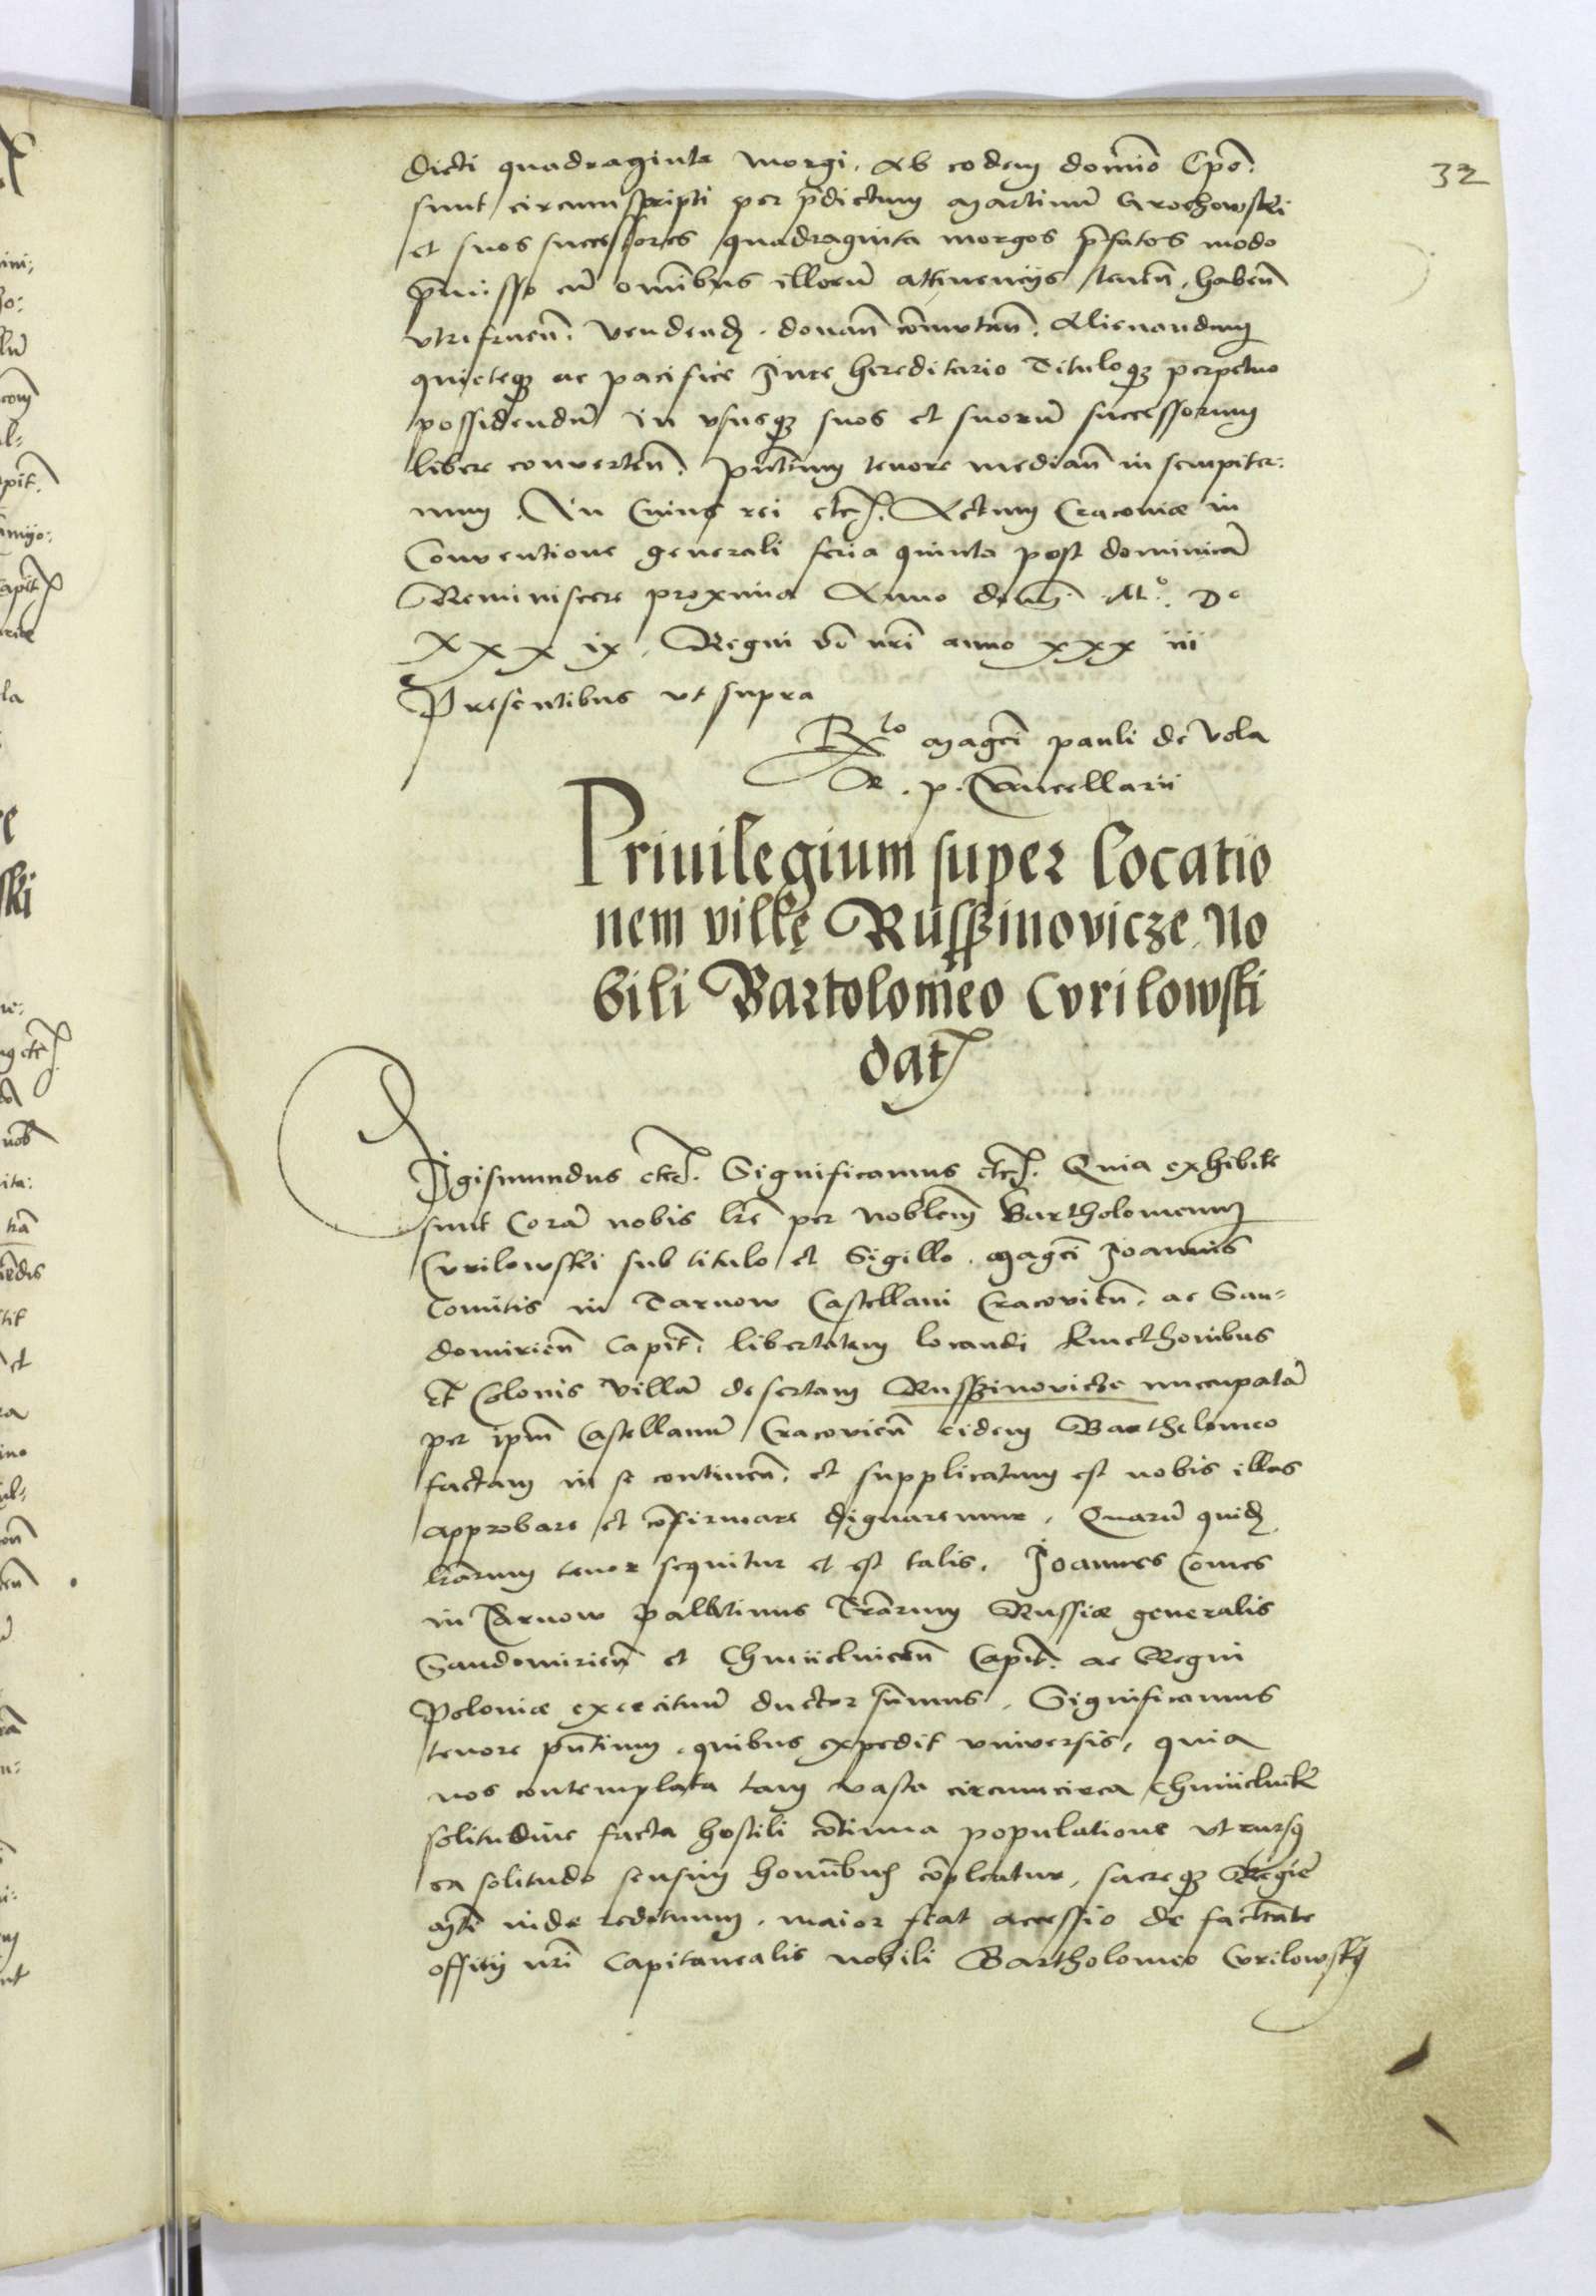 32
dicti quadraginta morgi, ab eodem domino Epo.
sunt circumscripti per p̄dictum Martinū Grochowski
et suos successores quadraginta morgos p̄fatos modo
p̄misso cū omībus illorū attinencijs tenen̄. haben̄
vtifruen̄. vendend. donan̄ com̄utan̄. Alienandum
quieteqȝ ac pacifice Jure hereditario Tituloqȝ perpetuo
possidendū in vsusqȝ suos et suorū successorum
libere converten̄. p̄ntium tenore median̄ in sempiter:
num. In Cuius rei etc. Actum Cracoviæ in
Conventione generali feria quinta post dominicā
Reminiscere proxima Anno domī. Mº. Dº
xxx ix, Regni vō nr̄i anno xxx iii
Presentibus vt supra
Rlo Magcī pauli de Vola
R. p. Cancellarii
Priuilegium super locatio
nem villę Russzinovicze No
bili Bartolomeo Cvrilowski
dat
Sigismundus etc. Significamus etc. Quia exhibite
sunt Corā nobis lrē per Noblem̄ Bartholomeum
Cvrilowski sub titulo et Sigillo. Magcī Joannis
Comitis in Tarnow Castellani Cracovien̄. ac San=
domirien̄ Capit̄. libertatem locandi kmethonibus
Et Colonis Villā desertam Russzinovicze nuncupatā
per ipm̄ Castellanū Cracovien̄ eidem Bartholomeo
factam in se continen̄. et supplicatum est nobis illas
approbare et cōfirmare dignaremur. Quarū quid
lrārum tenor sequitur et est talis. Joannes Comes
in Tarnow Palatinus Trārum Russiæ generalis
Sandomirien̄ et Chmielnicen̄ Capit̄. ac Regni
Poloniæ exercituū ductor sūmus. Significamus
tenore pn̄tium, quibus expedit vniversis, quia
nos contemplata tam vasta circumcirca Chmielnik
solitudine facta hostili cōtinua populatione vt rursꝯ
ea solitudo sensim hominibus cōpleatur, sacreqȝ Regiē
Mti inde redituum. maior fiat accessio de facultate
offitij nr̄i Capitanealis nobili Bartholomeo Cvrilowskij